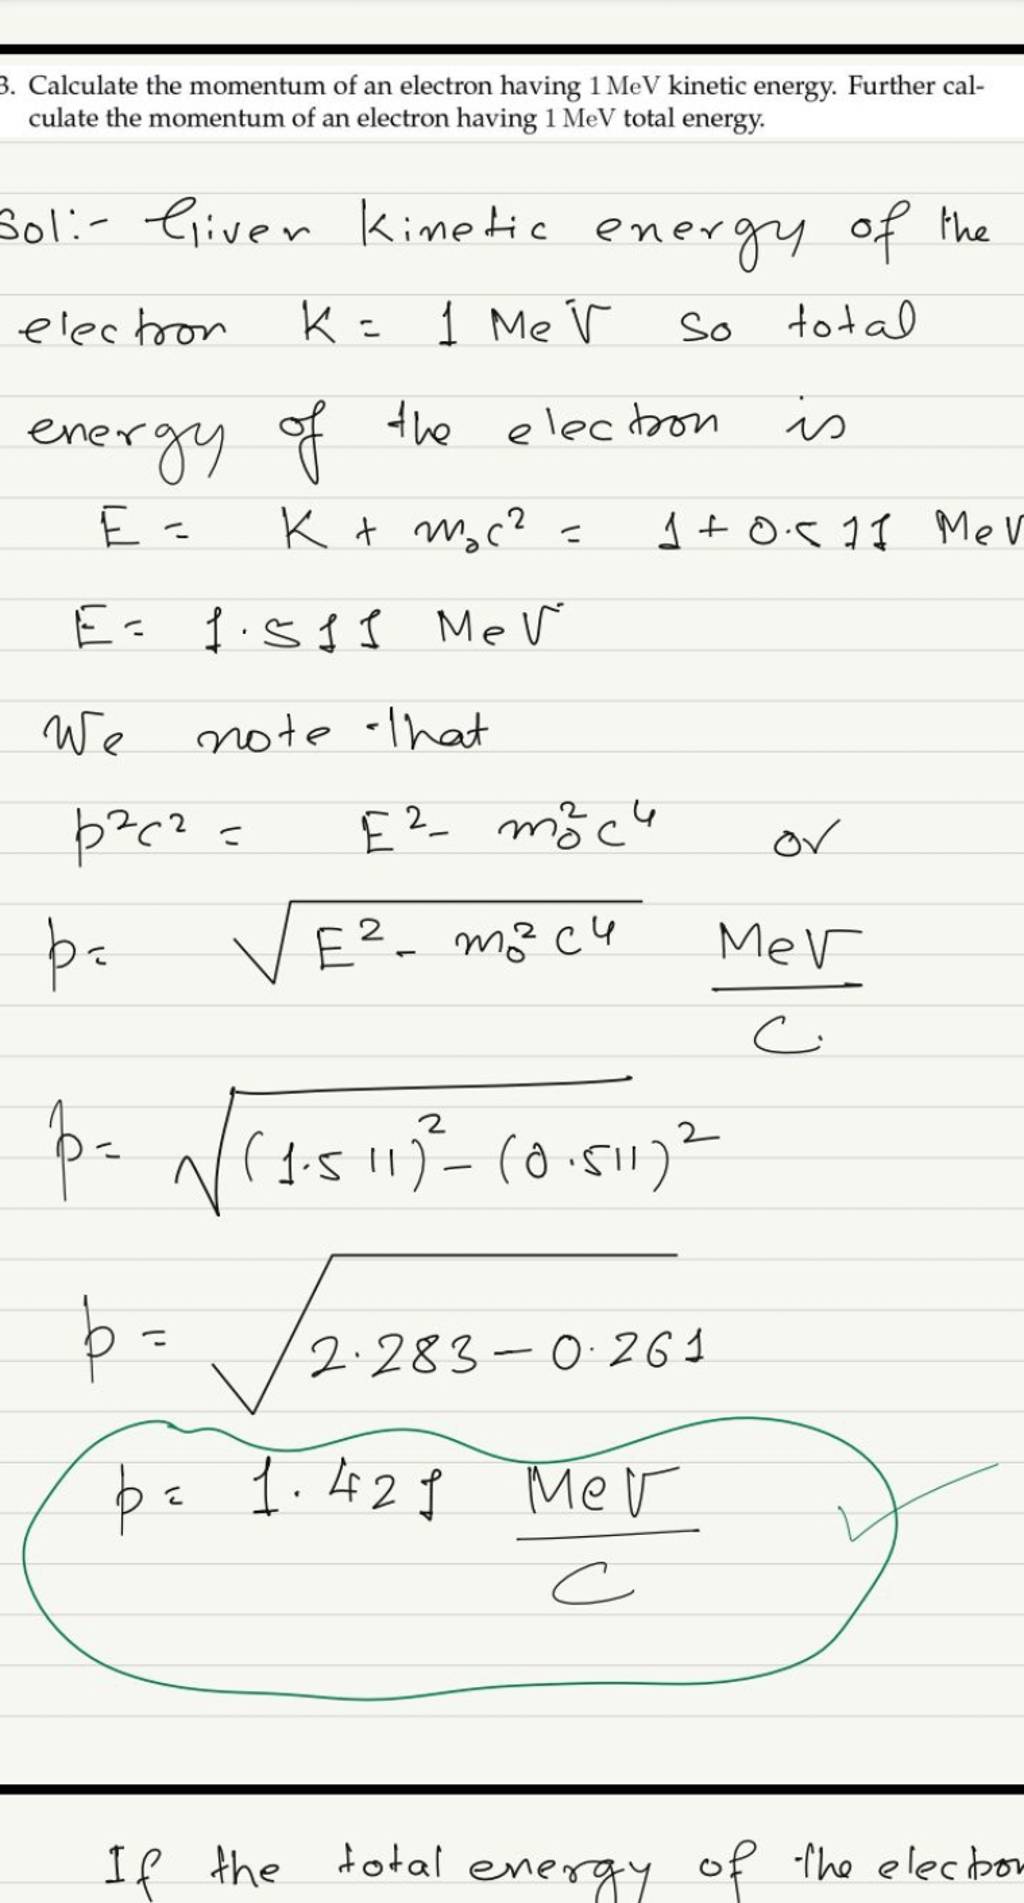 3. Calculate the momentum of an electron having 1 MeV kinetic energy. Further cal-
culate the momentum of an electron having 1 MeV total energy.
Sol:- Given kinetic energy of the
electron K = 1 MeV so total
energy of the electron is
E = K + m₀c² = 1 + 0.511 MeV
E = 1.511 MeV
We note that
p²c² = E² - m₀²c⁴ or
p = √E² - m₀²c⁴ MeV/C
p = √(1.511)² - (0.511)²
p = √2.283 - 0.261
p = 1.421 MeV/C
If the total energy of the electron